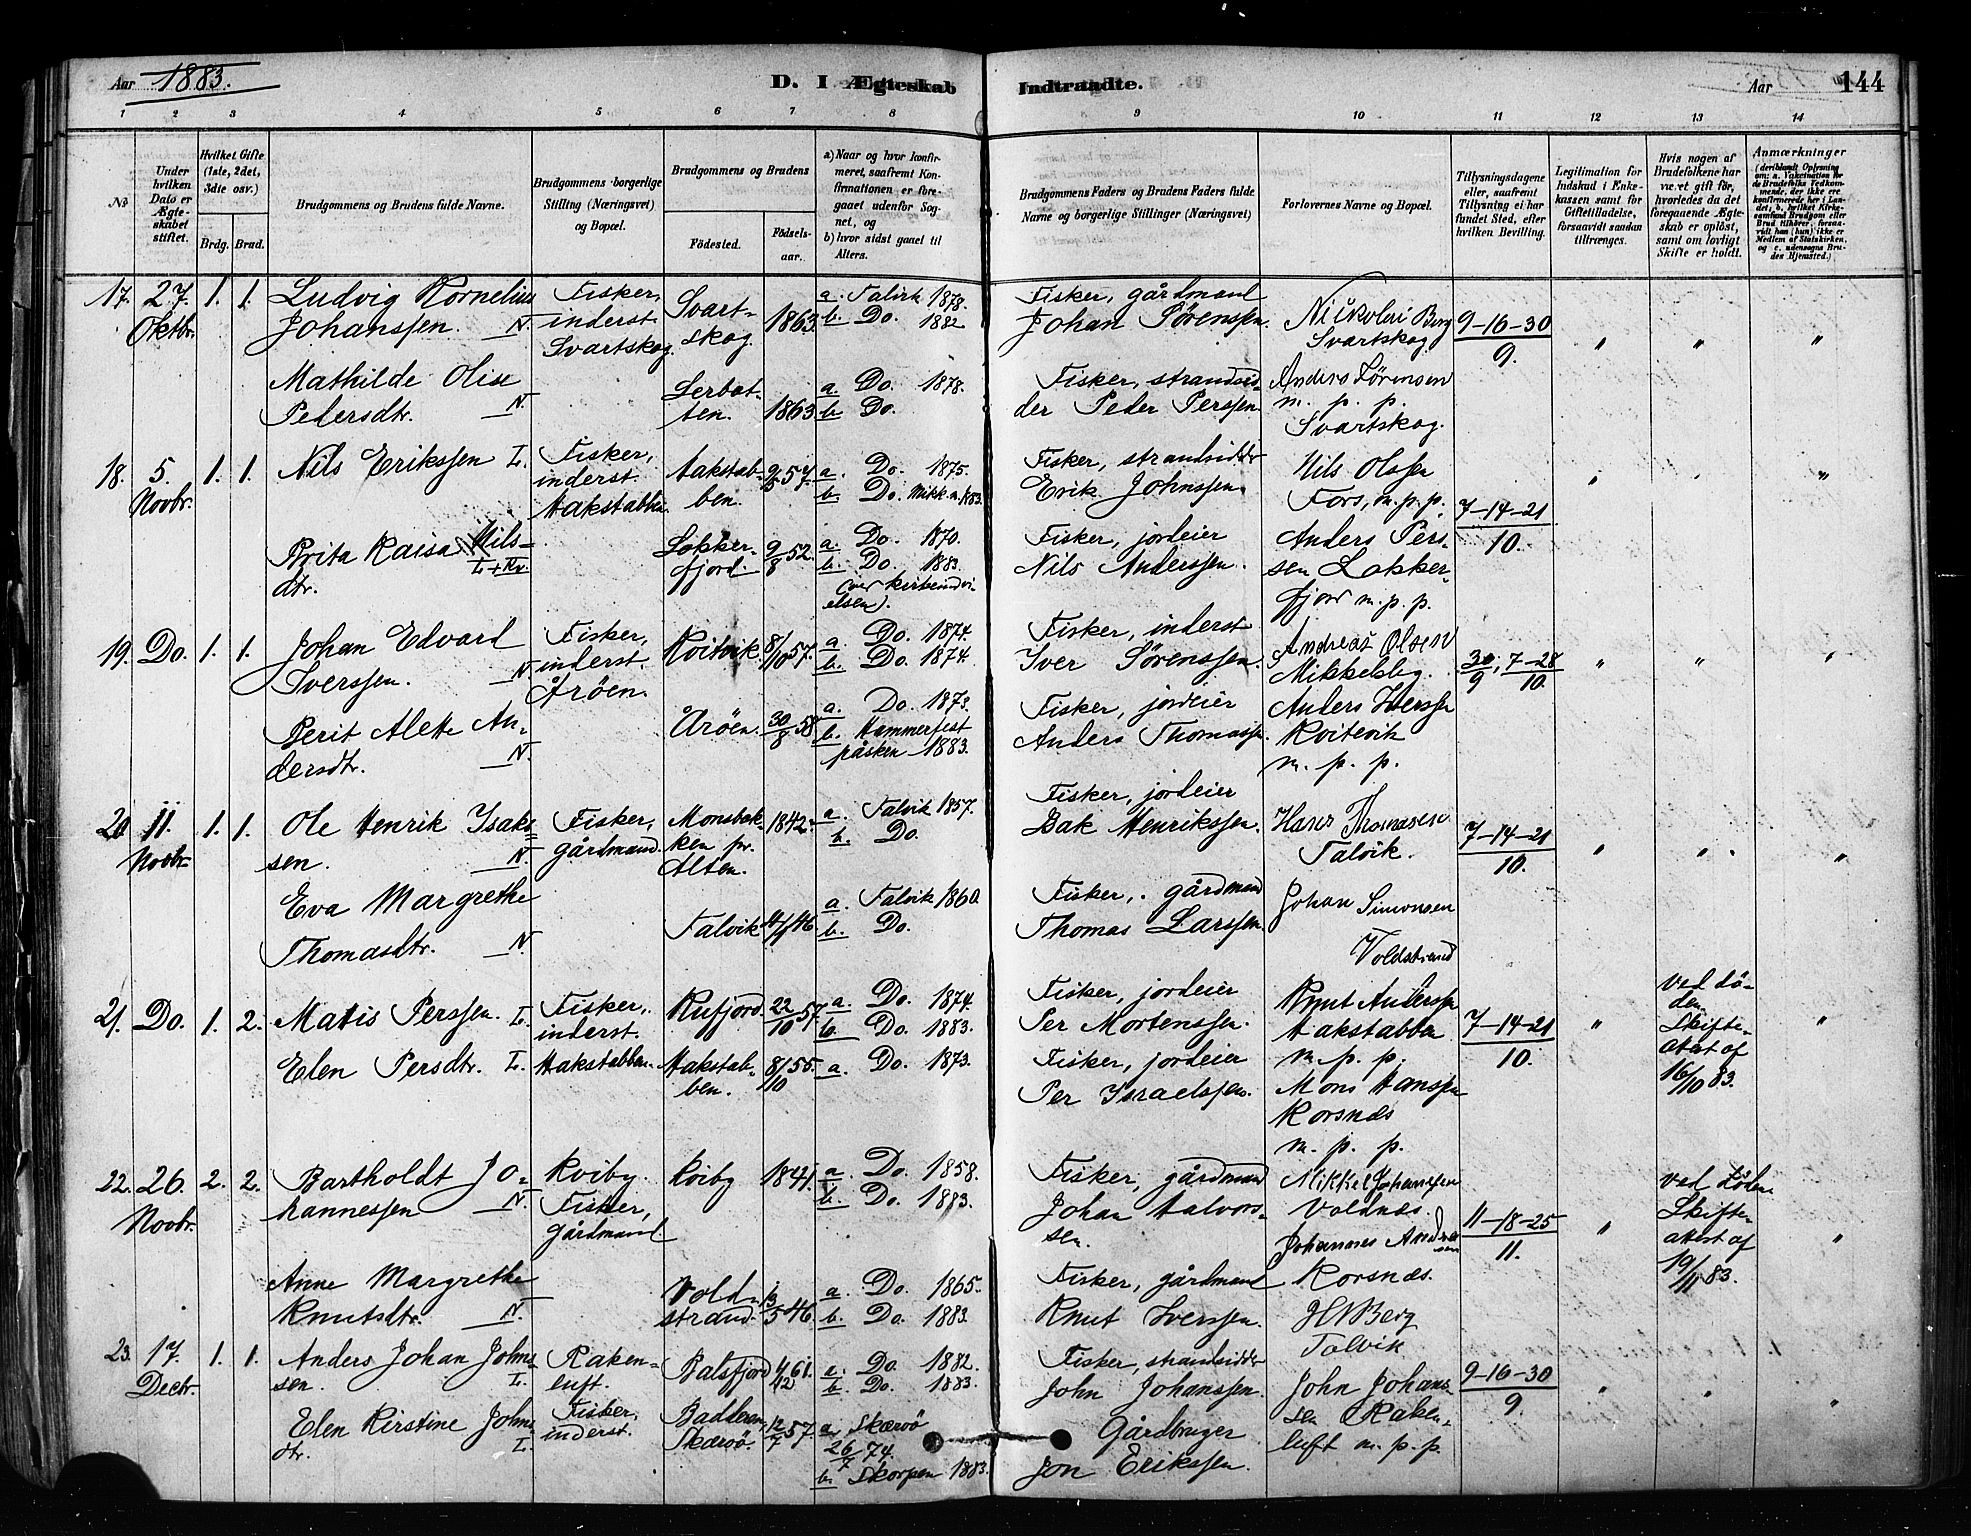 Aar 1883.
D. I Ægteskab Indtraadte.
Aar 144
1 2 3 4 5 6 7 8 9 10 11 12 13 14
No
Under hvilken Dato er Ægteskabet stiftet.
Hvilket Gifte (1ste, 2det, 3die osv.)
Brdg. Brud.
Brudgommens og Brudens fulde Navne.
Brudgommens borgerlige Stilling (Næringsvei) og Bopæl.
Brudgommens og Brudens
Fødested. Fødselsaar.
a) Naar og hvor konfirmeret, saafremt Konfirmationen er foregaaet udenfor Sognet, og
b) hvor sidst gaaet til Alters.
Brudgommens Faders og Brudens Faders fulde Navne og borgerlige Stillinger (Næringsvei)
Forlovernes Navne og Bopæl.
Tillysningsdagene eller, saafremt Tillysning ei har fundet Sted, efter hvilken Bevilling.
Legitimation for Indskud i Enkekassen samt for Giftetilladelse, forsaavidt saadan tiltrænges.
Hvis nogen af Brudefolkene har været gift før, hvorledes da det foregaaende Ægteskab er opløst, samt om lovligt Skifte er holdt.
Anmærkninger
17. 27. Oktbr. 1. 1. Ludvig Kornelius Johanssen. N. Fisker, inderst Svartskog. Svartskog. 1863. a. Talvik 1878. b. Do. 1882. Fisker, gårdmand Johan Sørenssen. Nickolai Berg Svartskog. 9-16-30/9. " " "
Mathilde Olise Pedersdtr. N. 1863. a. Do. 1878. b. Do. Fisker, strandsidder Peder Perssen. Anders Sørensen m. p. p. Svartskog.
18. 5. Novbr. 1. 1. Nils Erikssen L. Fisker, inderst. Hakstabben Hakstabben. 57. a. Do. 1875. b. Do. Fisker, strandsidder Erik Johnssen. Nils Olssen Fors, m. p. p. 7-14-21/10. " "
Brita Kaisa Nilsdtr. L+Kv. Lokkerfjord. 9/8 52. a. Do. 1870. b. Do. 1883. Fisker, jordeier Nils Anderssen. Anders Perssen Lokkerfjord m. p. p.
19. Do. 1. 1. Johan Edvard Iverssen. N. Fisker, inderst Årøen. Kvitvik 8/10 57. a. Do. 1874. b. Do. 1874. Fisker, inderst Iver Sørenssen. Andreas Olsen Mikkelsby. 30/9, 7-28/10. " " "
Berit Alette Andersdtr. N. Årøen. 30/8 58. a. Do. 1873. b. Hammerfest påsken 1883. Fisker, jordeier Anders Thomassen. Anders Iverssen Kvitevik m. p. p.
20. 11. Novbr. 1. 1. Ole Henrik Isakssen. N. Fisker, gårdmand. Monsbakken pr. Alten. 1842. a. Talvik 1857. b. Do. Fisker, jordeier Isak Henrikssen. Hans Thomasen Talvik. 7-14-21/10. " " "
Eva Margrethe Thomasdtr. N. Talvik 46. a. Talvik 1860. b. Do. Fisker, gårdmand Thomas Larssen. Johan Simonsen Voldstrand
21. Do. 1. 2. Matis Perssen. L. Fisker, inderst. Hakstabben. Kufjord. 22/10 57. a. Do. 1874. b. Do. 1883. Fisker, jordeier Per Mortenssen. Knut Anderssen Hakstabben m. p. p. 7-14-21/10. " ved döden. Skifteatest af 16/10 83. "
Elen Persdtr. L. Hakstabben. 8/10 55. a. Do. 1873. Fisker, jordeier Per Israelssen. Mons Hanssen Korsnæs m. p. p.
22. 26. Novbr. 2. 2. Bartholdt Johannessen N. Kviby. Fisker, gårdmand. Kviby 1841. a. Do. 1858. b. Do. 1883. Fisker, gårdmand Johan Halvorssen. Mikkel Johanssen Voldnæs. 11-18-25/11. " ved Döden Skifteatest af 19/11 83. "
Anne Margrethe Knutsdtr. N. Voldstrand. 46. a. Do. 1865. b. Do. 1883. Fisker, gårdmand Knut Iverssen. Johannes Andersen Korsnæs. H Berg Talvik
23. 17. Decbr. 1. 1. Anders Johan Johnssen. L. Rakenluft. Fisker, inderst. Balsfjord 61. a. Do. 1882. b. Do. 1883. Fisker, strandsidder John Johanssen. John Johanssen Rakenluft m. p. p. 9-16-30/9. " " "
Elen Kirstine Johnsdtr. L. Badderen, Skærvö. 12/7 57. a. Skærvö 26/7 74. b. Skorpen 1883. Gårdbruger Jon Erikssen.